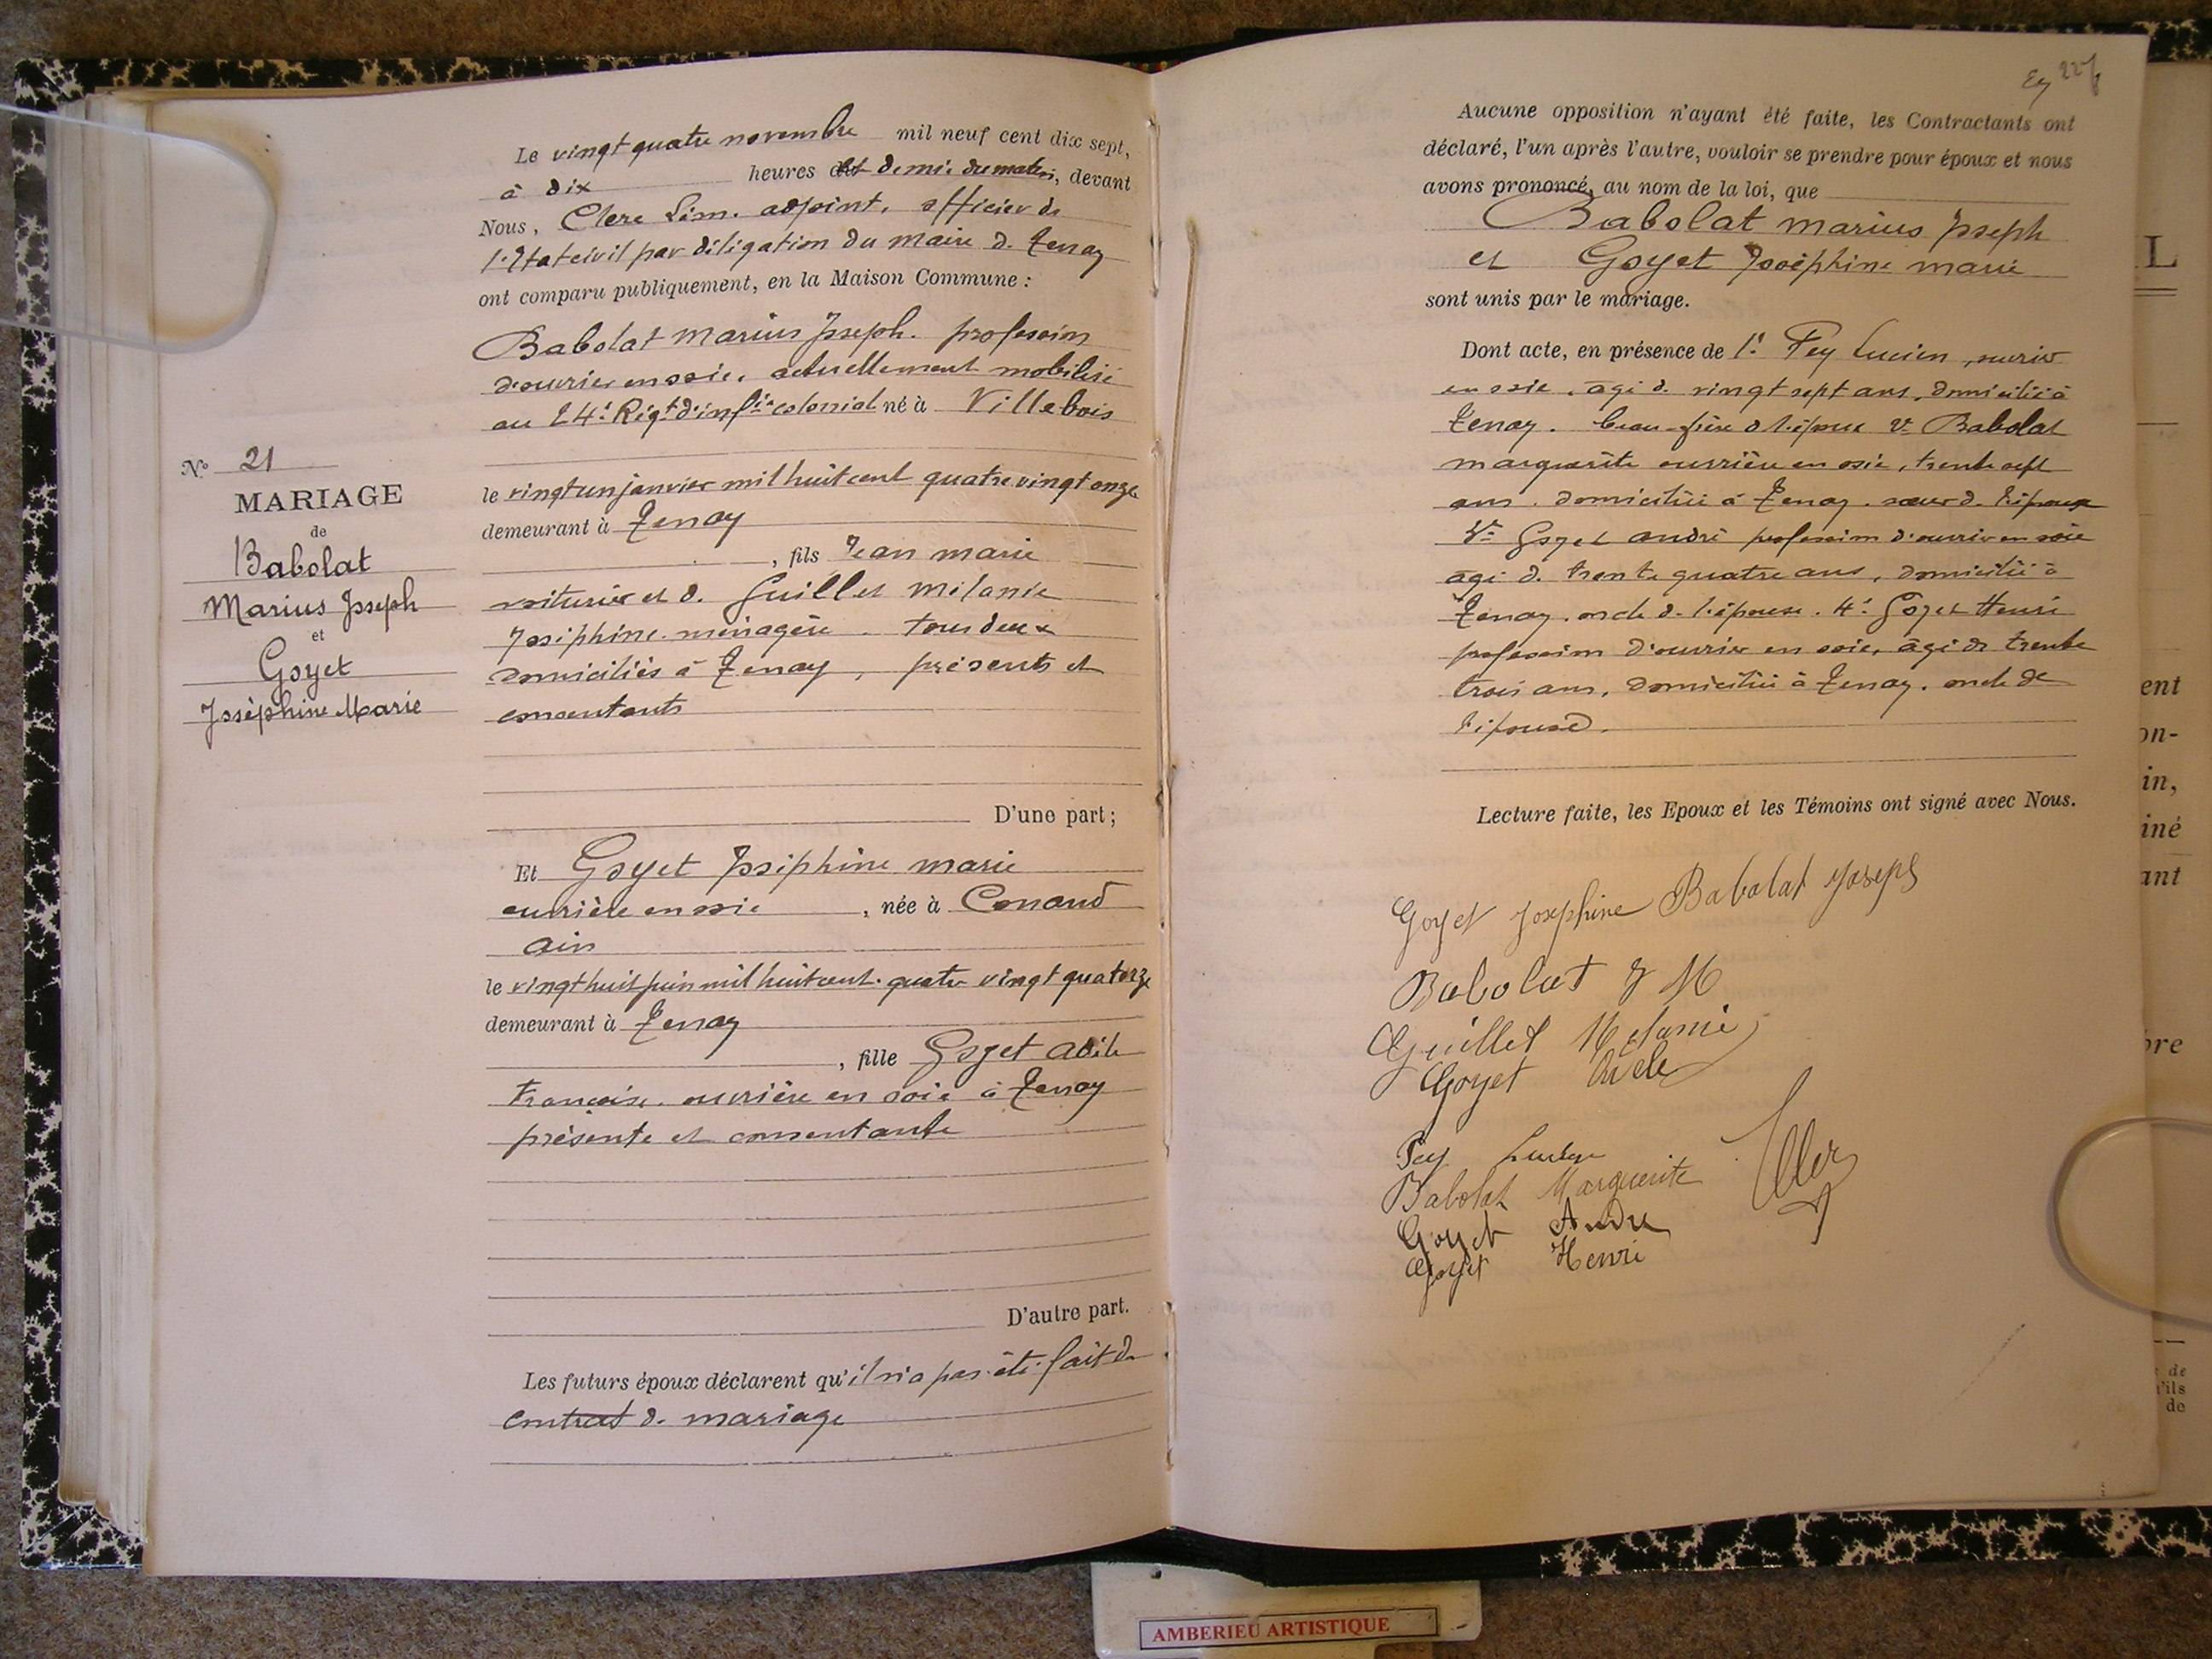 Le vingt quatre novembre mil neuf cent dix sept,
à dix heures et demie du matin, devant
Nous, Clerc Lém. adjoint, officier de
l'Etat civil par déligation du maire d. Tenay
ont comparu publiquement, en la Maison Commune :
Babolat Marius Joseph. profession
d'ouvrier en soie, actuellement mobilisé
au 24e Régt d'infie colonial né à Villebois
le vingt un janvier mil huit cent quatre vingt onze
demeurant à Tenay
, fils Jean marie
voiturier et d. Guillet Mélanie
Joséphine. ménagère. tous deux
domiciliés à Tenay, présents et
consentants
D'une part ;
N° 21
MARIAGE
de
Babolat
Marius Joseph
et
Goyet
Joséphine Marie
Et Goyet Joséphine marie
ouvrière en soie , née à Conand
Ain
le vingt huit juin mil huit cent. quatre vingt quatorze
demeurant à Tenay
, fille Goyet Adèle
Françoise. ouvrière en soie à Tenay
présente et consentante
D'autre part.
Les futurs époux déclarent qu'il n'a pas été fait de
contrat d. mariage
227
Aucune opposition n'ayant été faite, les Contractants ont
déclaré, l'un après l'autre, vouloir se prendre pour époux et nous
avons prononcé, au nom de la loi, que
Babolat marius Joseph
et Goyet Joséphine marie
sont unis par le mariage.
Dont acte, en présence de 1° Fey Lucien, ouvrier
en soie, âgé d. vingt sept ans, domicilié à
Tenay. beau-frère d l'époux 2° Babolat
marguerite ouvrière en soie, trente sept
ans. domiciliée à Tenay. sœur d. l'époux
3° Goyet andré profession d'ouvrier en soie
âgé d. trente quatre ans, domicilié à
Tenay. oncle d. l'épouse. 4° Goyet Henri
profession d'ouvrier en soie, âgé de trente
trois ans, domicilié à Tenay. oncle de
l'épouse.
Lecture faite, les Epoux et les Témoins ont signé avec Nous.
Goyet Josephine Babolat Joseph
Babolat J M
Guillet Melanie
Goyet Adele
Fey Lucien
Babolat Marguerite
Goyet André
Goyet Henri
L
ent
on-
in,
iné
ant
bre
de
'ils
de
AMBERIEU ARTISTIQUE